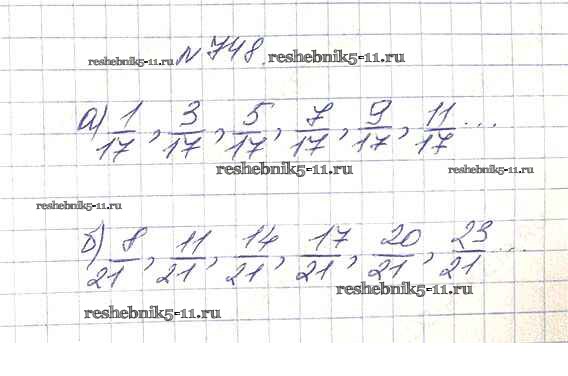 N 748.
reshebnik5-11.ru
reshebnik5-11.ru
а) 1/17, 3/17, 5/17, 7/17, 9/17, 11/17 ...
reshebnik5-11.ru
reshebnik5-11.ru
reshebnik5-11.ru
б) 8/21, 11/21, 14/21, 17/21, 20/21, 23/21 ...
reshebnik5-11.ru
reshebnik5-11.ru